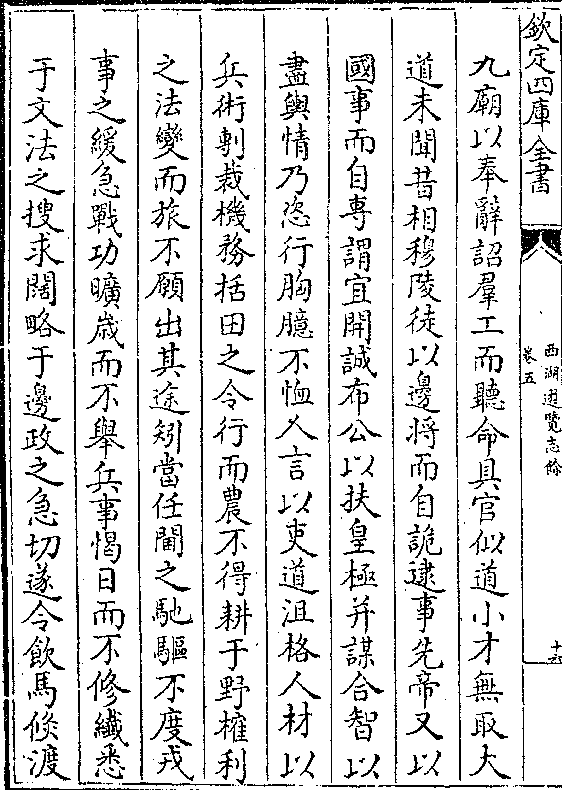 欽定四庫全書
西湖遊覽志餘
卷五
十六
九廟以奉辭詔羣工而聽命具官似道小才無取大
道未聞昔相穆陵徒以邊將而自詭逮事先帝又以
國事而自專謂宜開誠布公以扶皇極并謀合智以
盡輿情乃恣行胸臆不恤人言以吏道沮格人材以
兵術剸裁機務括田之令行而農不得耕于野榷利
之法變而旅不願出其途矧當任閫之馳驅不度戎
事之緩急戰功曠歲而不舉兵事愒日而不修纖悉
于文法之搜求闊略于邊政之急切遂令飲馬倏渡